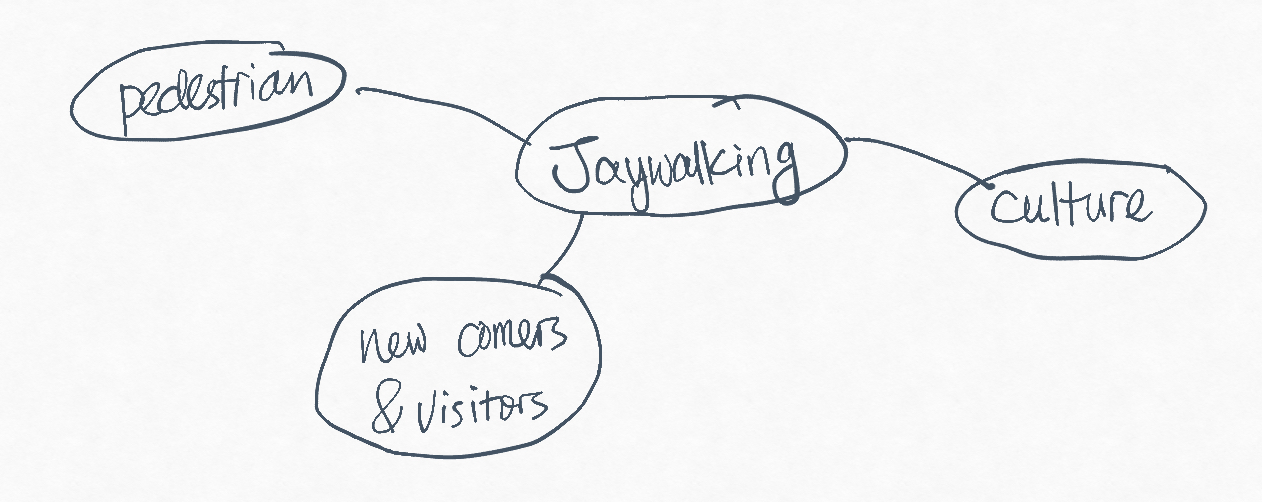 pedestrian
Jaywalking
culture
new comers
& visitors